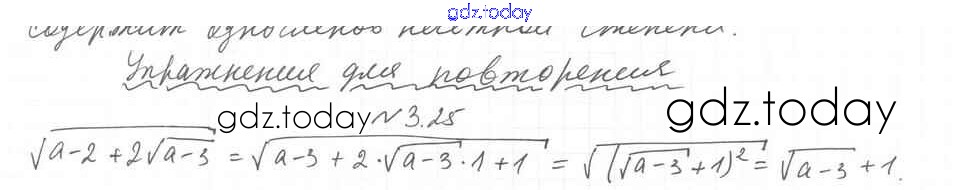 gdz.today
содержит одночленов нечётной степени.
Упражнения для повторения
gdz.today №3.25 gdz.today
√(a-2+2√(a-3)) = √(a-3+2·√(a-3)·1+1) = √((√(a-3)+1)²) = √(a-3)+1.